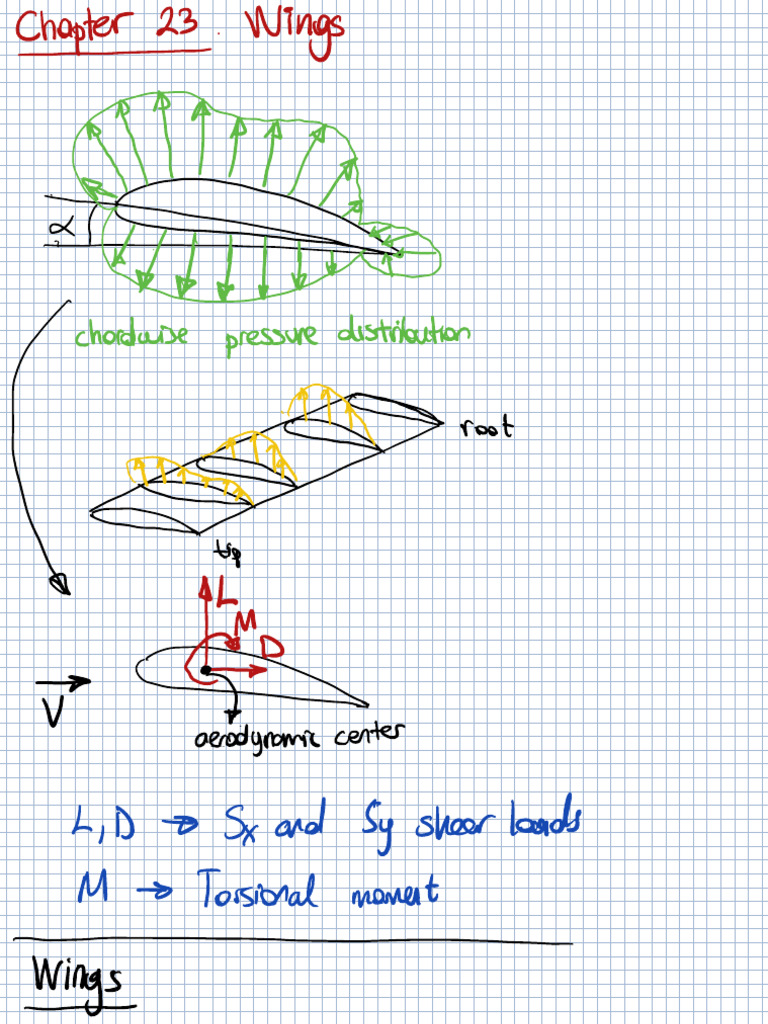 Chapter 23. Wings
α
chordwise pressure distribution
root
tip
L
M
D
V
aerodynamic center
L, D → Sx and Sy shear loads
M → Torsional moment
Wings